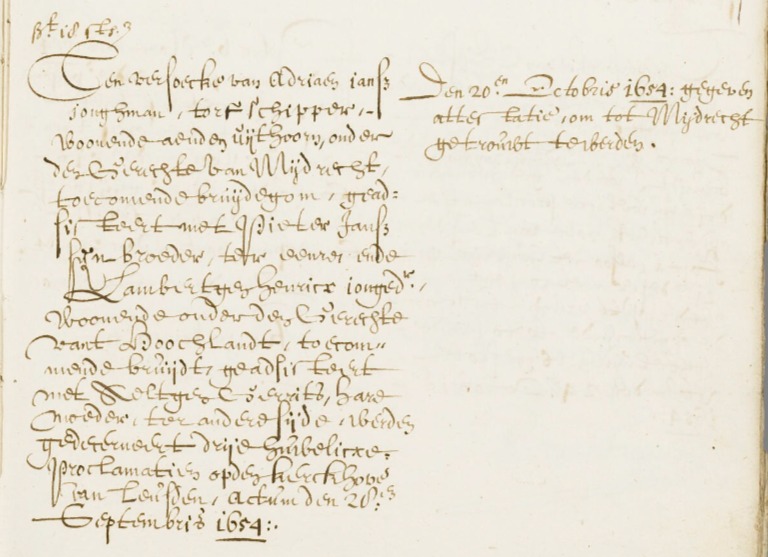 Ten versoecke van Adriaen Jansz
jonghman, torfschipper,
woonende aenden Uijthoorn, onder
den Gerechte van Mijdrecht,
toecomende bruijdegom, gead=
sisteert met Pieter Jansz
sijn broeder, ter eenre, ende
Lambertgen Henricx jongedr.,
woonende onder den Gerechte
vant Hoochlandt, toecom=
mende bruijdt, geadsisteert
met Aeltgen Gerrits, hare
moeder, ter andere sijde, werden
gedecerneert drije huwelicxe
proclamatien opden kerckhove
van Leusden, Actum den 28en
Septembris 1654:.
Den 20.en Octobris 1654: gegeven
attestatie, om tot Mijdrecht
getrouwt te werden.